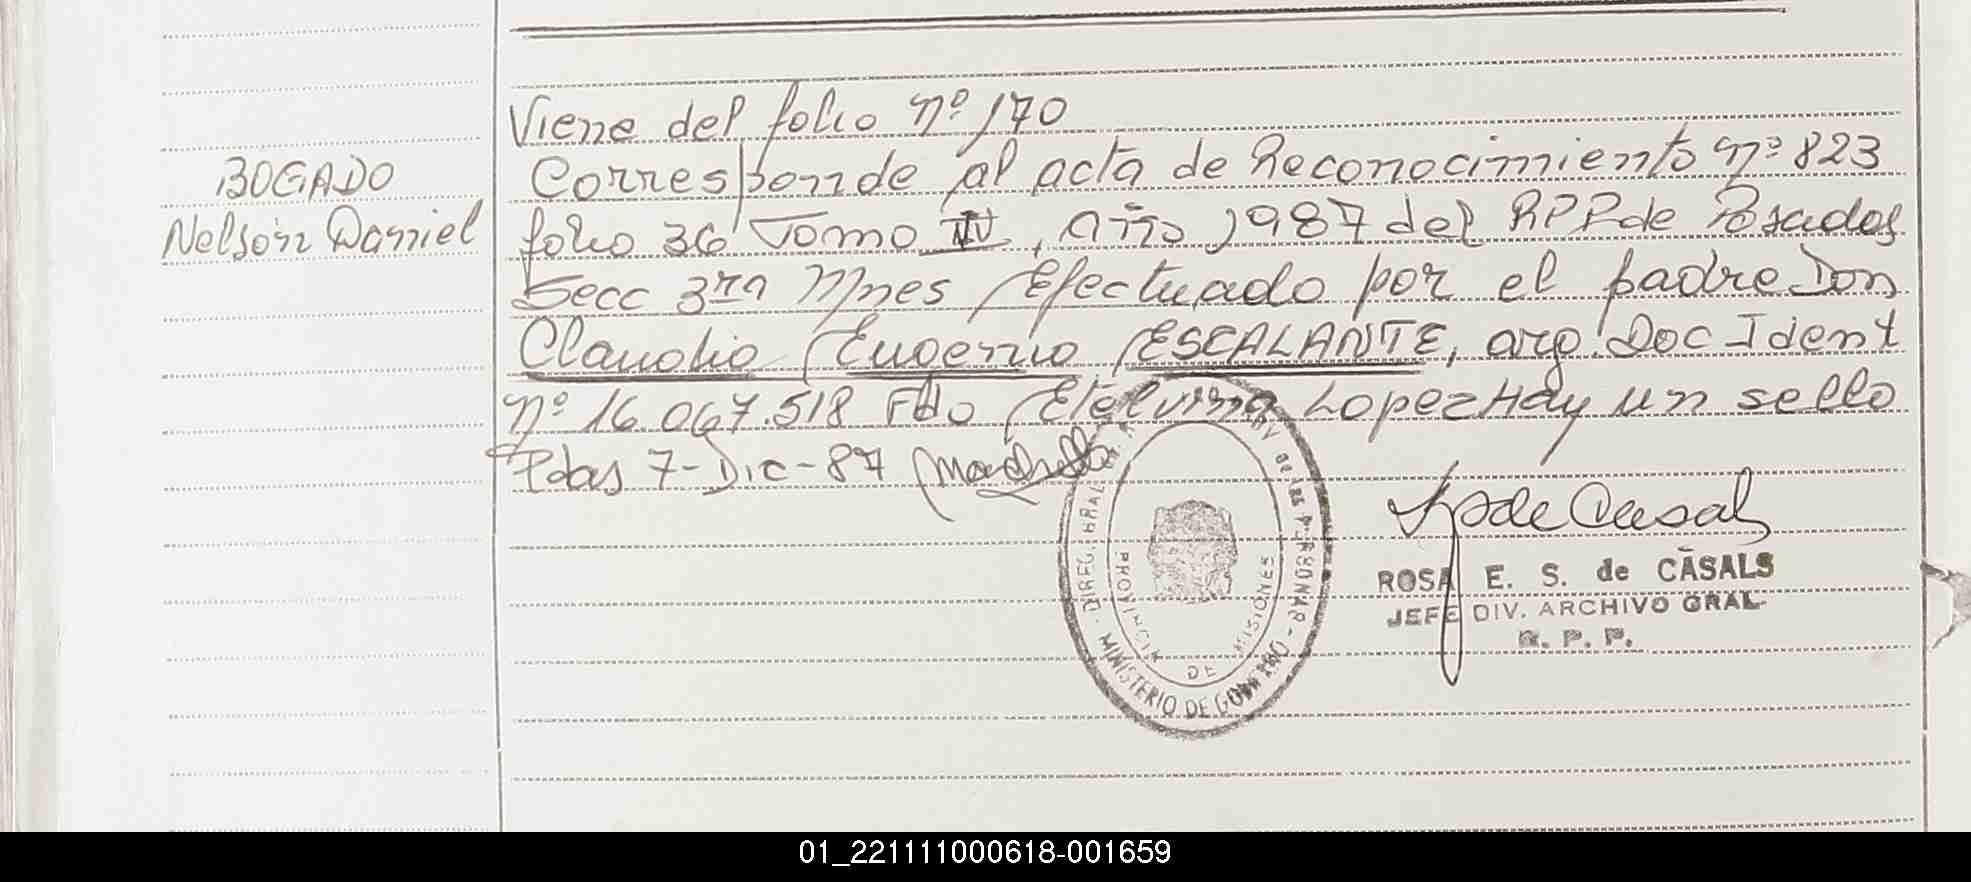 Viene del folio nº 170
BOGADO
Nelson Daniel
Corresponde al acta de Reconocimiento nº 823
folio 36 Tomo IV, Año 1987 del RPP de Posadas
Secc 3ra Mnes Efectuado por el padre Don
Claudio Eugenio ESCALANTE, arg. Doc Ident
nº 16.067.518 Fdo Etelvina Lopez Hay un sello
Pdas 7-Dic-87
DIREC. GRAL
DE LAS PERSONAS - MINISTERIO DE GOBIERNO
PROVINCIA DE MISIONES
S de Casals
ROSA E. S. de CASALS
JEFE DIV. ARCHIVO GRAL
R. P. P.
01_221111000618-001659